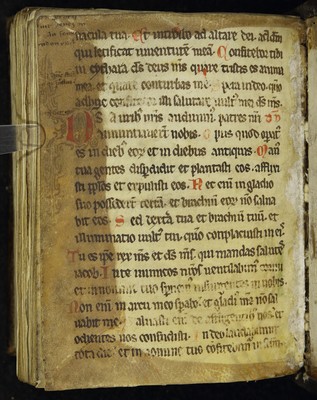 nacula tua. Et introibo ad altare dei. ad dm
qui letificat iuventutem meā. Confitebor tibi
in cythara ds deus ms quare tristis es anima
mea et quare conturbas me. Spera in deo qm
adhuc confitebor illi salutare uult mei ds ms.
Ds auribus nris audiuim. patres nri
annuntiauerūt nobis. Opus quod opat
es in dieb eoȝ et in diebus antiquis. Man
tua gentes disperdidit et plantasti eos. afflixi
sti pplos et expulisti eos. Nec em in gladio
suo possederūt terrā. et brachiū eoȝ nō salua
bit eos. Sed dextera tua et brachiū tuū. et
illuminatio uult tui. qm complacuisti in eis
Tu es ipe rex ms et ds ms. qui mandas salutes
iacob. In te inimicos nros uentilabim cornu
et in nomine tuo spnem insurgentes in nobis.
Non em in arcu meo spabo. et gladi ms nō sal
uabit me. Saluasti em de affligentib nos. et
odientes nos confudisti. In deo laudabimur
tota die. et in nomine tuo confitebim in